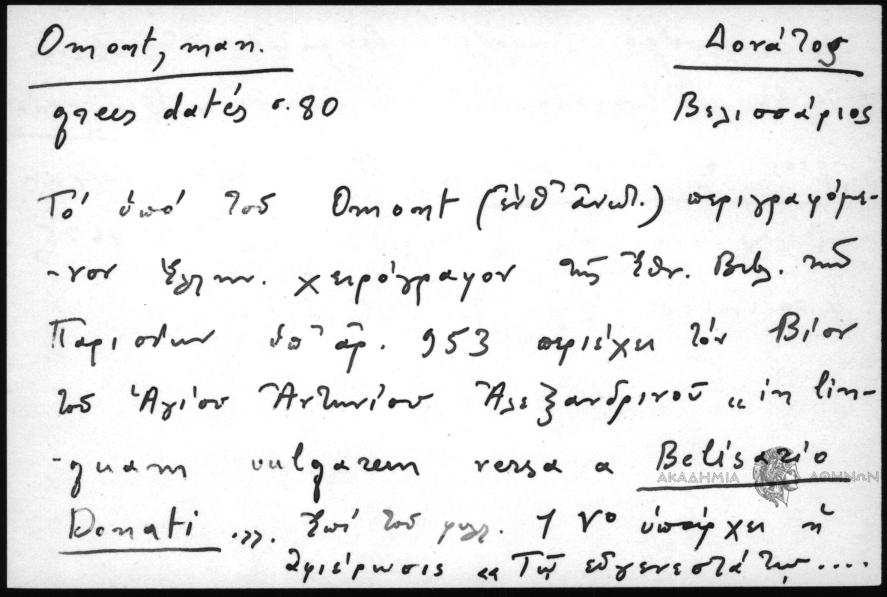 Omont, man. Δονάτος
grecs datés σ. 80 Βελισσάριος
Τό ὑπό τοῦ Omont (ἔνθ' ἀνωτ.) περιγραφόμε-
-νον Ἑλλην. χειρόγραφον τῆς Ἐθν. Βιβλ. τῶν
Παρισίων ὑπ' ἀρ. 953 περιέχει τόν Βίον
τοῦ Ἁγίου Ἀντωνίου Ἀλεξανδρινοῦ « in lin-
-guam vulgarem versa a Belisario
ΑΚΑΔΗΜΙΑ ΑΘΗΝΩΝ
Donati ...». Ἐπί τοῦ φυλ. 1 Vº ὑπάρχει ἡ
ἀφιέρωσις « Τῷ εὐγενεστάτῳ ....